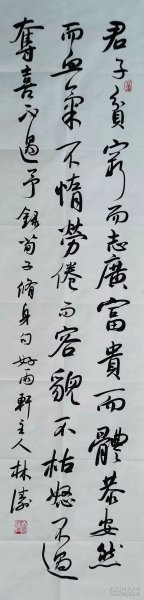 君子貧窮而志廣富貴而體恭安然
而血氣不惰勞倦而容貌不枯怒不過
奪喜不過予 錄荀子脩身句 好雨軒主人林濤